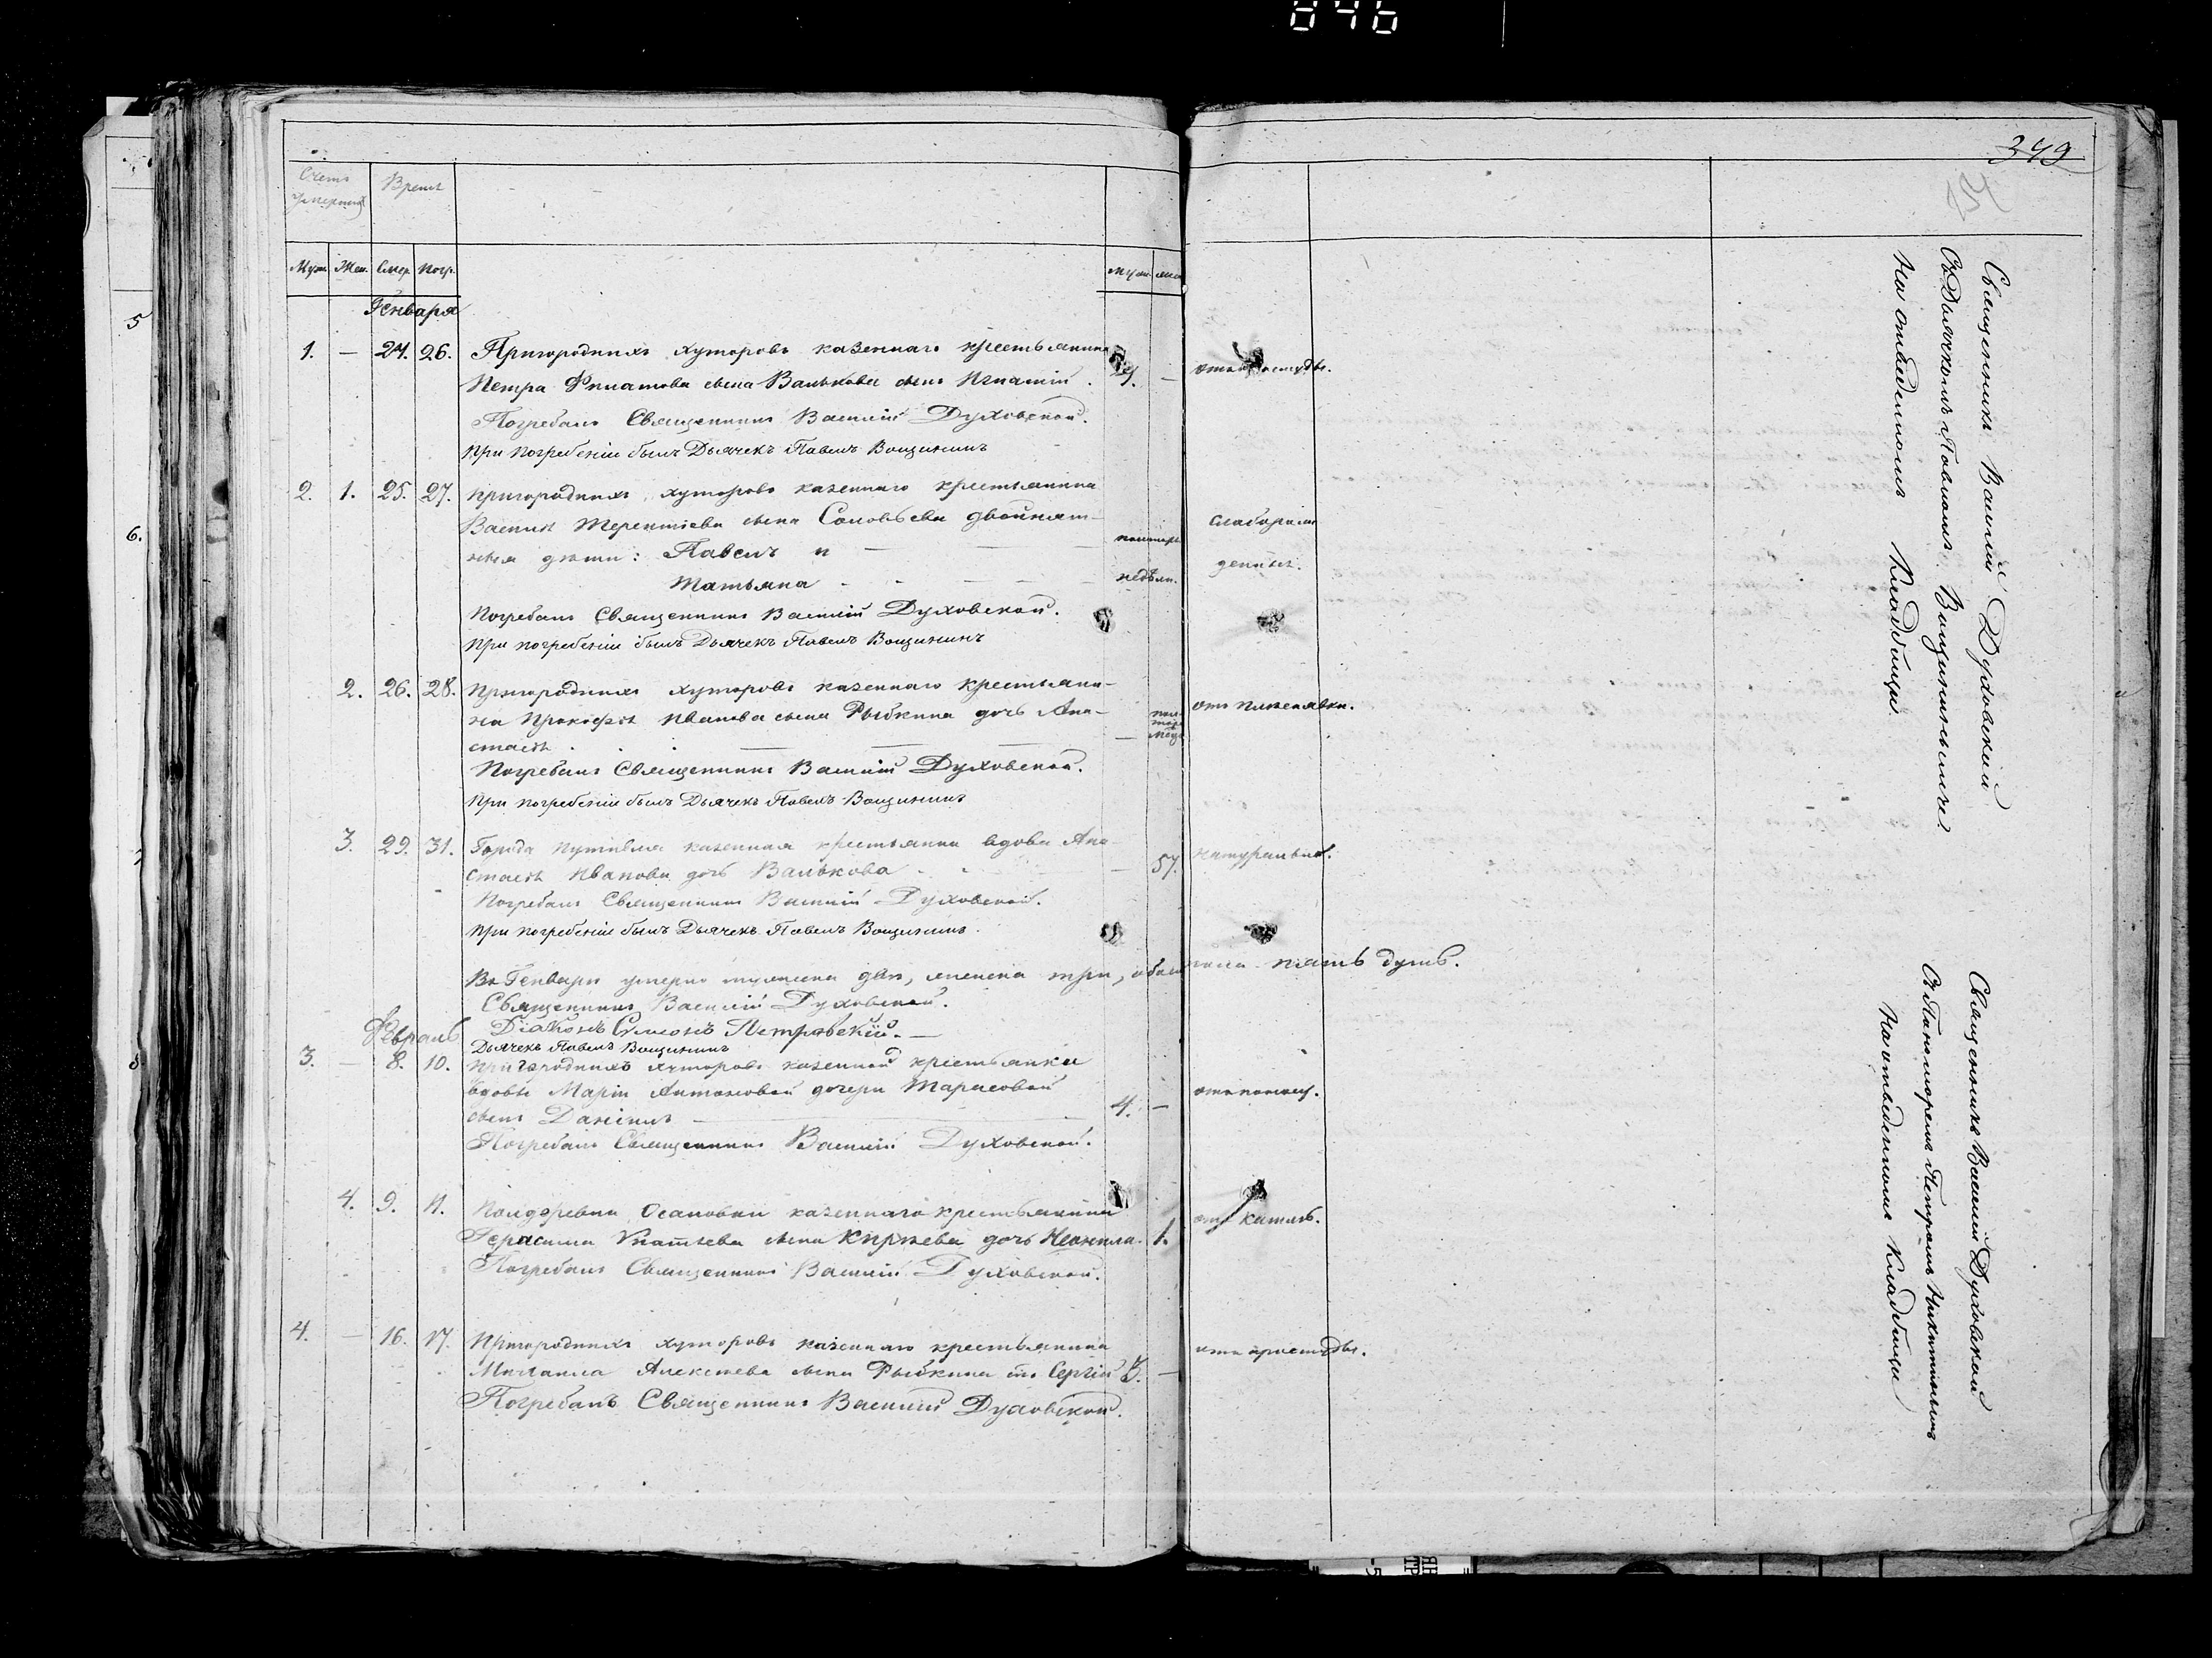 846
349
Счетъ умершихъ
Время
Муж. Жен. Смер. Погр.
муж. жен.
Генваря
1. — 24. 26. Пригородныхъ хуторовъ казеннаго крестьянина
Петра Филатова сына Валькова сынъ Игнатій. 24. — отъ простуды.
Погребалъ Священникъ Василій Духовской.
При погребеніи былъ Дьячекъ Павелъ Вощининъ
2. 1. 25. 27. Пригородныхъ хуторовъ казеннаго крестьянина
Василія Терентіева сына Соловьева двойнят-
дѣти: Павелъ и — полторы слаборож
Татьяна — недѣли. денныя.
Погребалъ Священникъ Василій Духовской.
При погребеніи былъ Дьячекъ Павелъ Вощининъ
2. 26. 28. Пригородныхъ хуторовъ казеннаго крестьяни-
на Прокофія Иванова сына Рыбкина дочь Ана-
стасія — отъ
Погребалъ Священникъ Василій Духовской.
При погребеніи былъ Дьячекъ Павелъ Вощининъ
3. 29. 31. Города Путивля казенная крестьянка вдова Ана
стасія Иванова дочь Валькова — 57. натурально.
Погребалъ Священникъ Василій Духовской.
При погребеніи былъ Дьячекъ Павелъ Вощининъ.
Въ Генварѣ умерло мужеска два, женска три, обоего пола пять душъ.
Священникъ Василій Духовской.
Діаконъ Симеонъ Петровскій. —
Дьячекъ Павелъ Вощининъ
Февраль
3. — 8. 10. Пригородныхъ хуторовъ казенной крестьянки
вдовы Маріи Антоновой дочери Тарасовой
сынъ Даніилъ — 4. —
Погребалъ Священникъ Василій Духовской.
4. 9. 11. деревни казеннаго крестьянина
Герасима Игнатьева сына дочь Неонила. 1. отъ кашля.
Погребалъ Священникъ Василій Духовской.
4. — 16. 17. Пригородныхъ хуторовъ казеннаго крестьянина
Михаила Алексѣева сына Рыбкина сынъ Сергій 3. — отъ простуды.
Погребалъ Священникъ Василій Духовской.
Священникъ Василій Духовский
Съ Дьячкомъ Павломъ Вощининымъ
На отведенномъ Кладбищи
Священникъ Василій Духовской
Съ Панамаремъ Петромъ Никитинымъ
На отведенномъ Кладбищи
5
6.
8.